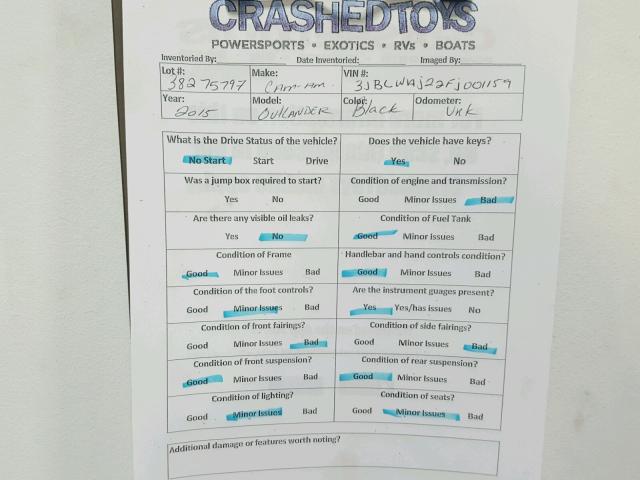 CRASHEDTOYS
POWERSPORTS • EXOTICS • RVs • BOATS
Inventoried By: Date Inventoried: Imaged By:
Lot #: 38275797 Make: Can-Am VIN #: 3JBLWWJ22FJ001159
Year: 2015 Model: OUTLANDER Color: Black Odometer: Unk
What is the Drive Status of the vehicle? Does the vehicle have keys?
No Start Start Drive Yes No
Was a jump box required to start? Condition of engine and transmission?
Yes No Good Minor Issues Bad
Are there any visible oil leaks? Condition of Fuel Tank
Yes No Good Minor Issues Bad
Condition of Frame Handlebar and hand controls condition?
Good Minor Issues Bad Good Minor Issues Bad
Condition of the foot controls? Are the instrument guages present?
Good Minor Issues Bad Yes Yes/has issues No
Condition of front fairings? Condition of side fairings?
Good Minor Issues Bad Good Minor Issues Bad
Condition of front suspension? Condition of rear suspension?
Good Minor Issues Bad Good Minor Issues Bad
Condition of lighting? Condition of seats?
Good Minor Issues Bad Good Minor Issues Bad
Additional damage or features worth noting?